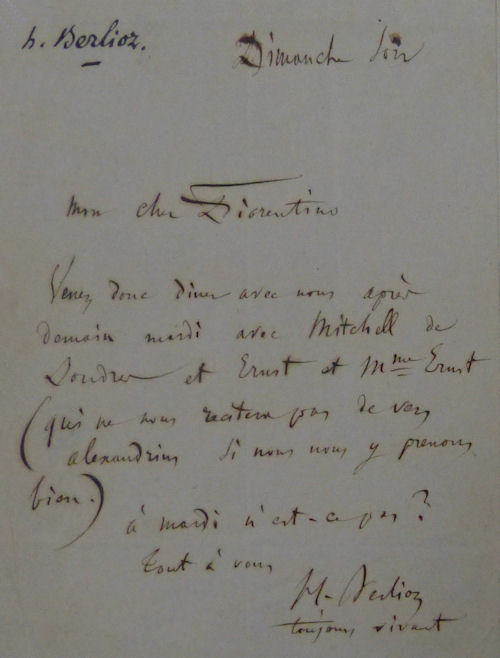 h. Berlioz.
Dimanche soir
Mon cher Fiorentino
Venez donc diner avec nous après
demain mardi avec Mitchell de
Londres et Ernst et Mme Ernst
(qui ne nous recitera pas de vers
alexandrins si nous nous y prenons
bien.)
à mardi n'est-ce pas?
tout à vous
H. Berlioz
toujours vivant